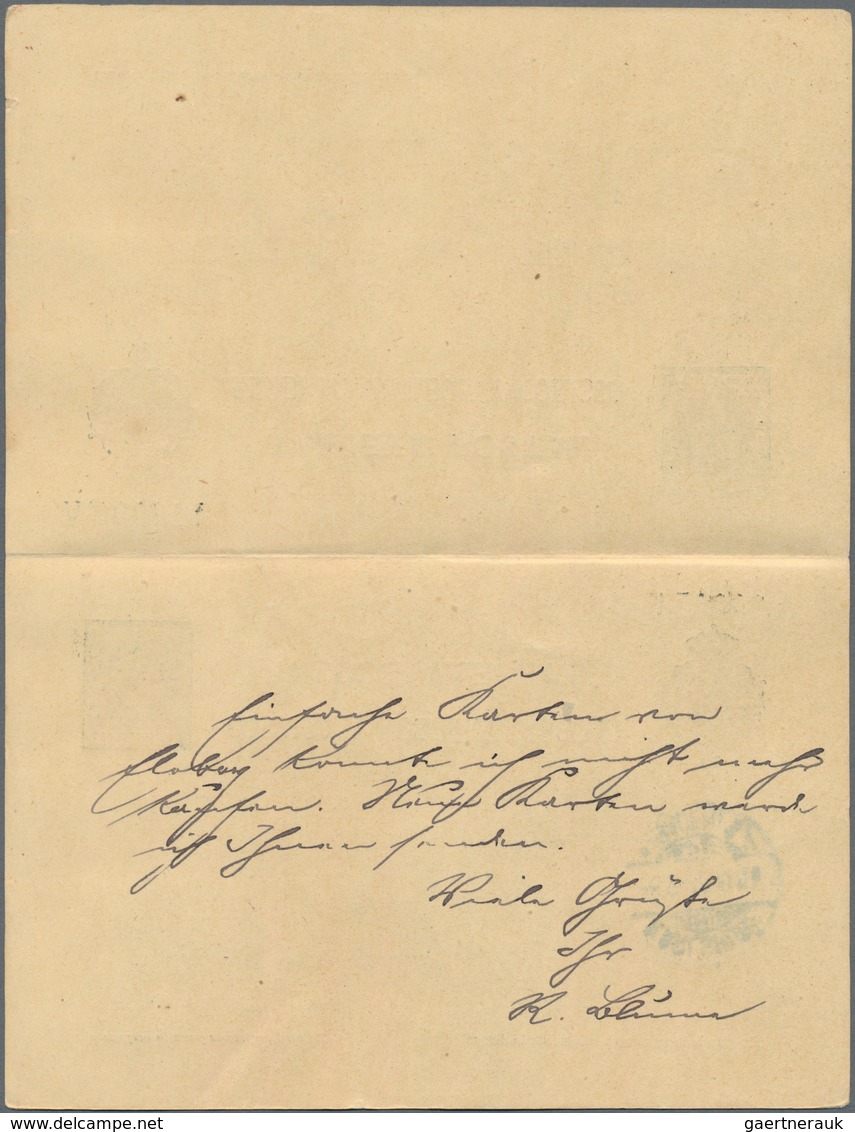 Einfache Karten von
konnte ich nicht mehr
kaufen. Neue Karten werde
ich Ihnen senden.
Viele Grüße
Ihr
R. Blume
www.delcampe.net
gaertnerauk